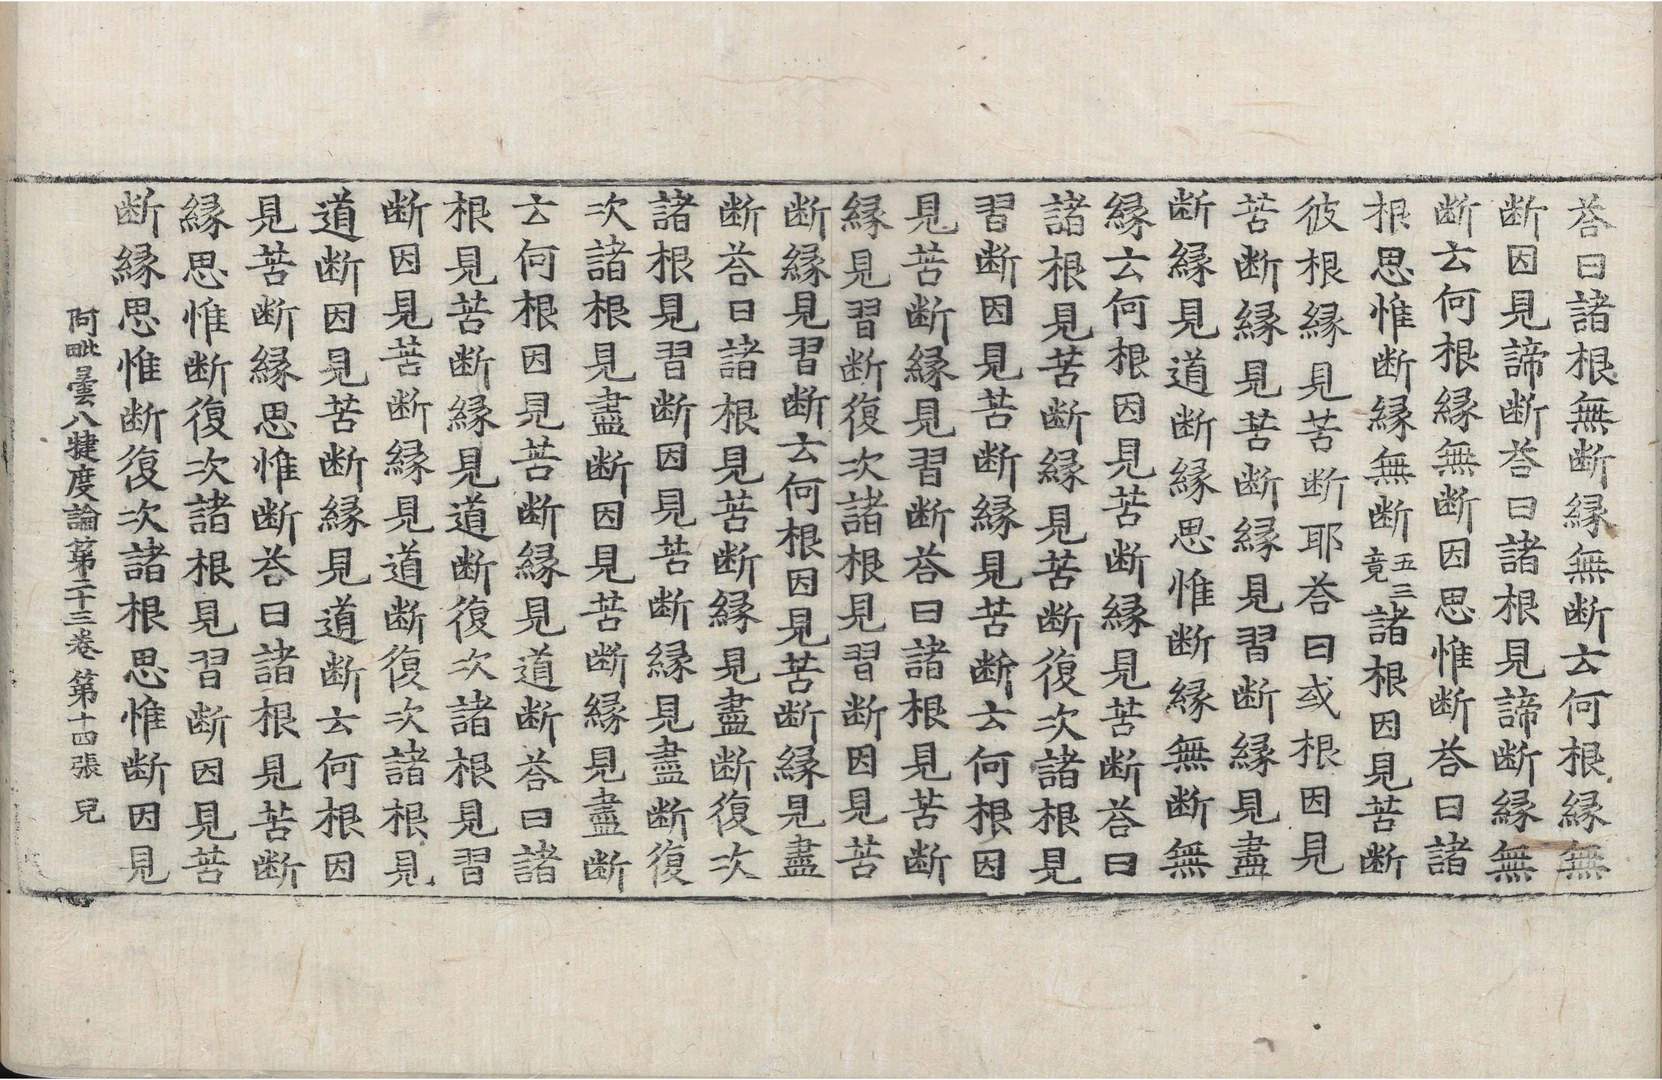 荅曰諸根無斷緣無斷云何根緣無
斷因見諦斷荅曰諸根見諦斷緣無
斷云何根緣無斷因思惟斷荅曰諸
根思惟斷緣無斷五三竟諸根因見苦斷
彼根緣見苦斷耶荅曰或根因見
苦斷緣見苦斷緣見習斷緣見盡
斷緣見道斷緣思惟斷緣無斷無
緣云何根因見苦斷緣見苦斷荅曰
諸根見苦斷緣見苦斷復次諸根見
習斷因見苦斷緣見苦斷云何根因
見苦斷緣見習斷荅曰諸根見苦斷
緣見習斷復次諸根見習斷因見苦
斷緣見習斷云何根因見苦斷緣見盡
斷荅曰諸根見苦斷緣見盡斷復次
諸根見習斷因見苦斷緣見盡斷復
次諸根見盡斷因見苦斷緣見盡斷
云何根因見苦斷緣見道斷荅曰諸
根見苦斷緣見道斷復次諸根見習
斷因見苦斷緣見道斷復次諸根見
道斷因見苦斷緣見道斷云何根因
見苦斷緣思惟斷荅曰諸根見苦斷
緣思惟斷復次諸根見習斷因見苦
斷緣思惟斷復次諸根思惟斷因見
阿毗曇八犍度論第二十三卷 第十四張 兒